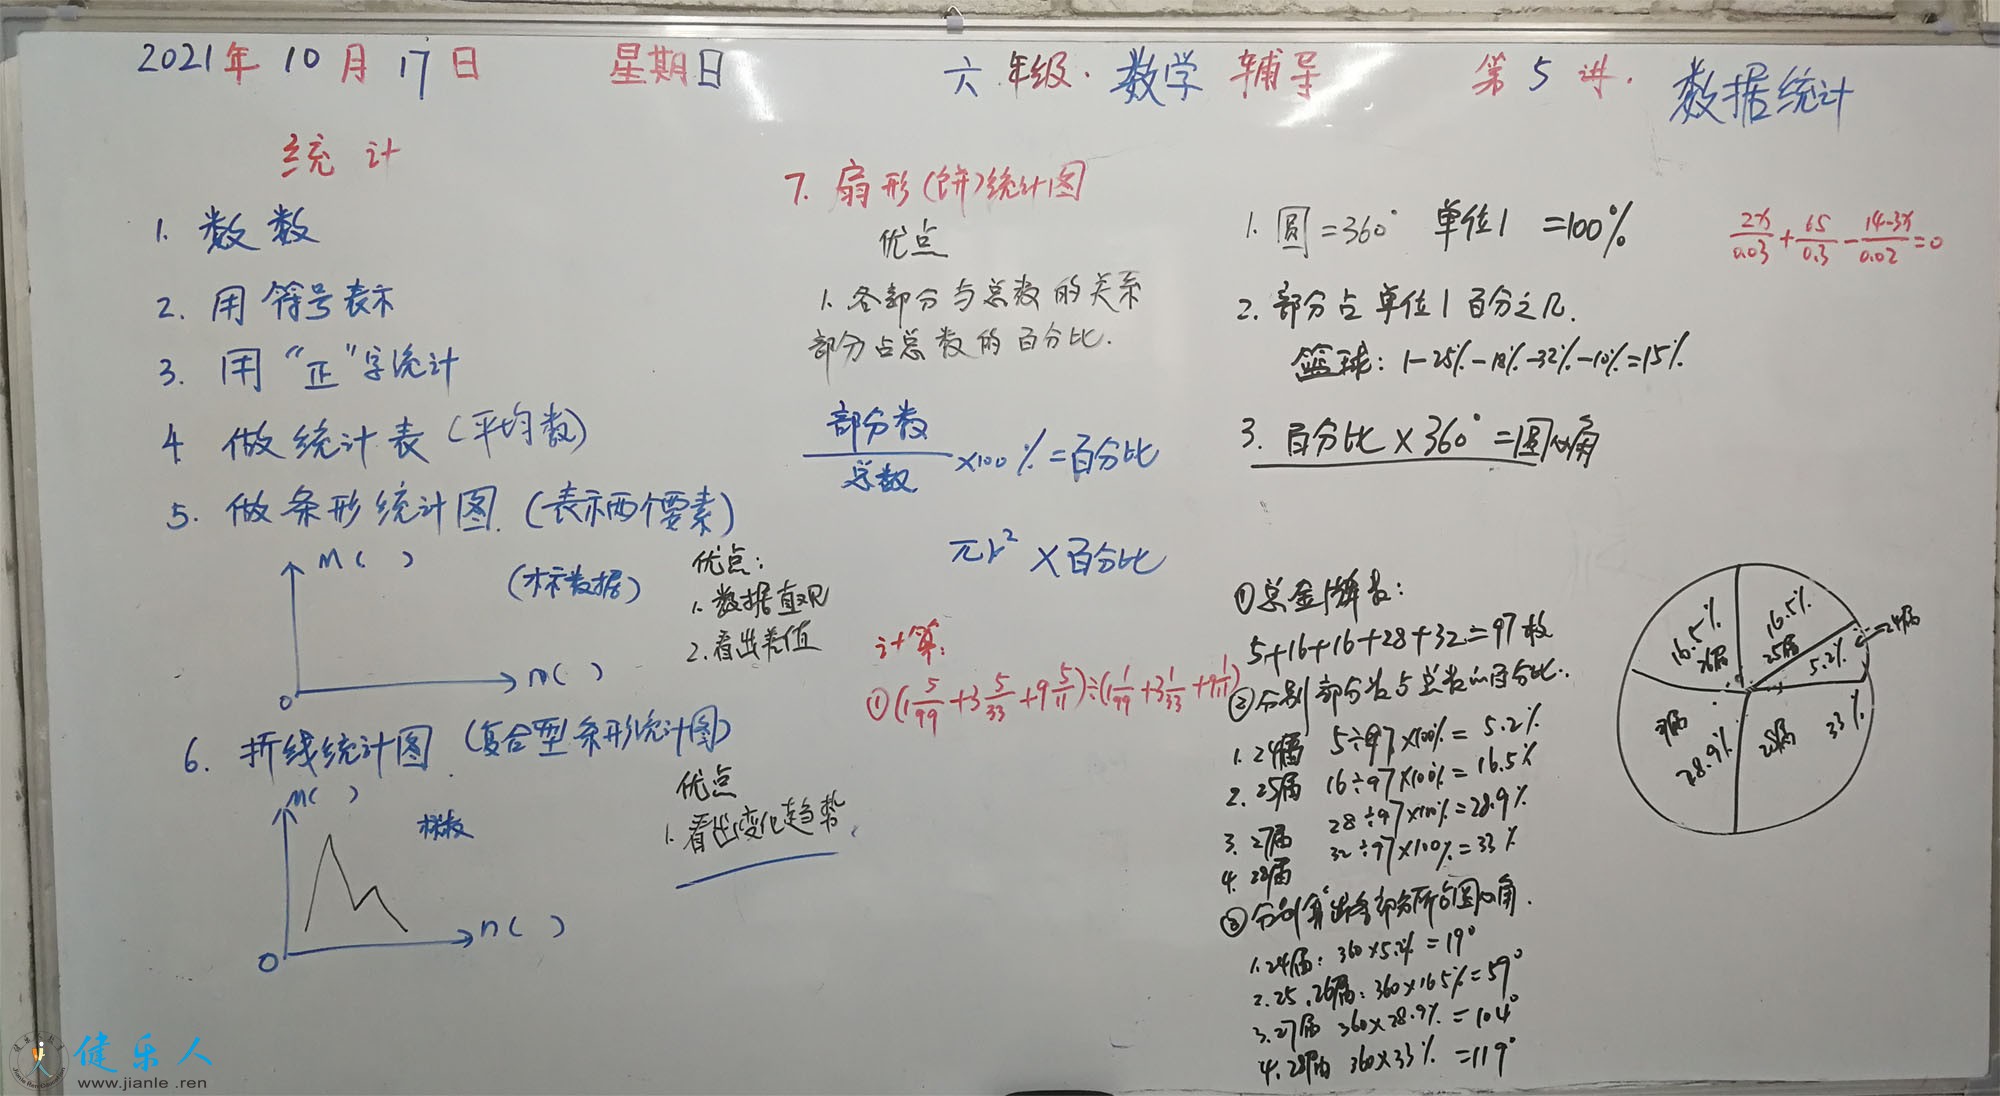 2021年10月17日 星期日 六年级·数学辅导 第5讲. 数据统计
统计
1. 数数
2. 用符号表示
3. 用“正”字统计
4 做统计表(平均数)
5. 做条形统计图.(表示两个要素)
M( )
(标数据)
0
n( )
优点:
1. 数据直观
2. 看出差值
6. 折线统计图(复合型条形统计图)
M( )
标数
0
n( )
优点
1. 看出变化趋势.
7. 扇形(饼)统计图
优点
1. 各部分与总数的关系
部分占总数的百分比.
部分数/总数 ×100% = 百分比
πr² ×百分比
计算:
① (1 5/99 + 3 5/33 + 9 5/11) ÷ (1 1/99 + 3 1/33 + 9 1/11)
1. 圆=360° 单位1 =100%
2. 部分占单位1百分之几.
篮球: 1-25%-18%-32%-10%=15%
3. 百分比×360°=圆心角
2x/0.03 + 65/0.3 - 14-3x/0.02 = 0
①总金牌数:
5+16+16+28+32=97枚
②分别部分数占总数的百分比:
1. 24届 5÷97×100%= 5.2%
2. 25届 16÷97×100%=16.5%
3. 27届 28÷97×100%=28.9%
4. 28届 32÷97×100%=33%
③分别算出各部分所占圆心角.
1. 24届: 360×5.2% =19°
2. 25、26届: 360×16.5%=59°
3. 27届 360×28.9% =104°
4. 28届 360×33% =119°
16.5%
26届
16.5%
25届
5.2%
24届
28.9%
33%
健乐人
www.jianle.ren